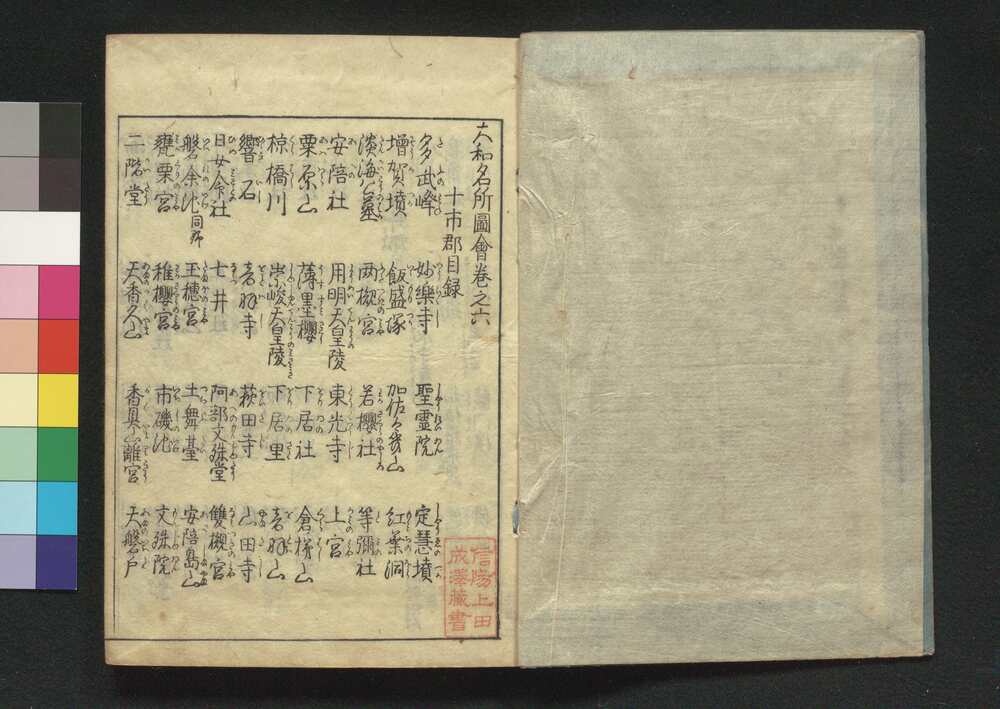 大和名所圖會巻之六
十市郡目録
多武峰 妙樂寺 聖霊院 定慧墳
増賀墳 飯盛塚 加佐々妻山 紅葉洞
淡海公墓 两槻宮 若櫻社 等彌社
安陪社 用明天皇陵 東光寺 上宮
粟原山 薄墨櫻 下居社 倉梯山
椋橋川 崇峻天皇陵 下居里 音羽山
響石 音羽寺 萩田寺 山田寺
日女命社 七井 阿部文殊堂 雙槻宮
磐余池同所 玉穂宮 土舞臺 安陪島山
甕栗宮 稚櫻宮 市磯池 文殊院
二階堂 天香久山 香具山離宮 天磐戸
信陽上田
成澤藏書